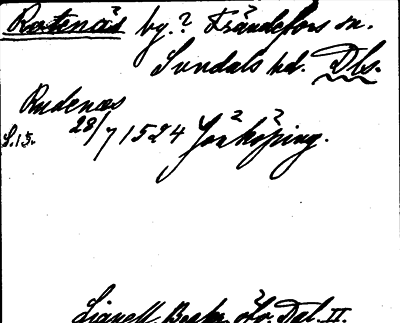 Rotenäs by.? Frändefors sn.
Sundals hd. Dls.
Rudenæs
S. 15. 28/7 1524 Jönköping.
Lignell, Beskr. Dal. II.